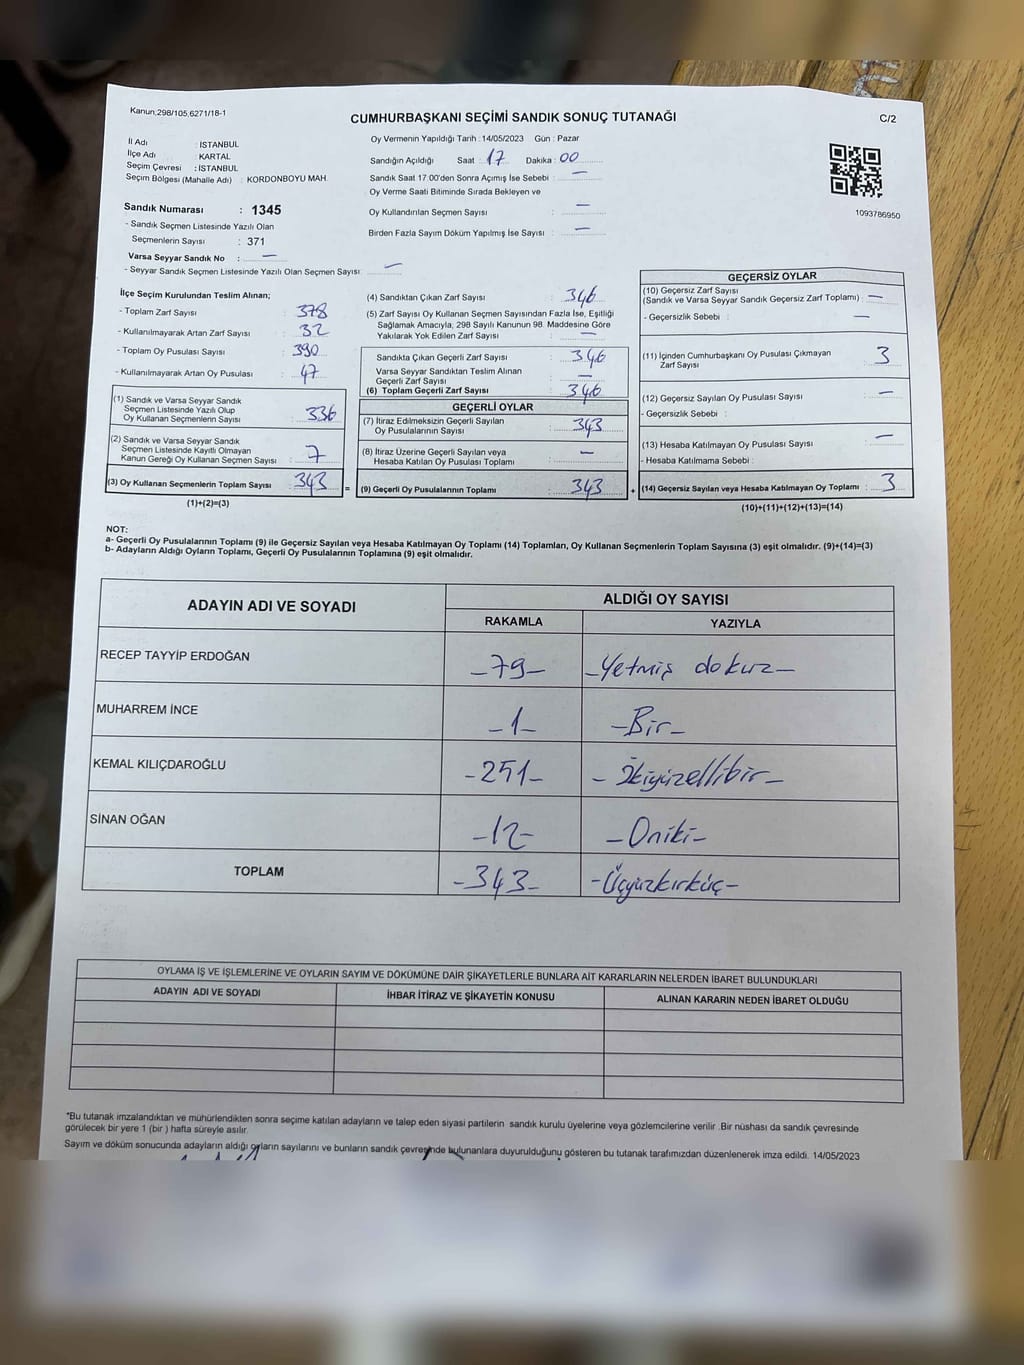 Kanun,298/105,6271/18-1
CUMHURBAŞKANI SEÇİMİ SANDIK SONUÇ TUTANAĞI
C/2
İl Adı : İSTANBUL
İlçe Adı : KARTAL
Seçim Çevresi : İSTANBUL
Seçim Bölgesi (Mahalle Adı) : KORDONBOYU MAH.
Sandık Numarası : 1345
- Sandık Seçmen Listesinde Yazılı Olan
Seçmenlerin Sayısı : 371
Varsa Seyyar Sandık No : —
- Seyyar Sandık Seçmen Listesinde Yazılı Olan Seçmen Sayısı: —
Oy Vermenin Yapıldığı Tarih : 14/05/2023 Gün : Pazar
Sandığın Açıldığı Saat : 17 Dakika : 00
Sandık Saat 17:00'den Sonra Açımış İse Sebebi : —
Oy Verme Saati Bitiminde Sırada Bekleyen ve
Oy Kullandırılan Seçmen Sayısı : —
Birden Fazla Sayım Döküm Yapılmış İse Sayısı : —
1093786950
İlçe Seçim Kurulundan Teslim Alınan;
- Toplam Zarf Sayısı : 378
- Kullanılmayarak Artan Zarf Sayısı : 32
- Toplam Oy Pusulası Sayısı : 390
- Kullanılmayarak Artan Oy Pusulası : 47
(1) Sandık ve Varsa Seyyar Sandık
Seçmen Listesinde Yazılı Olup
Oy Kullanan Seçmenlerin Sayısı : 336
(2) Sandık ve Varsa Seyyar Sandık
Seçmen Listesinde Kayıtlı Olmayan
Kanun Gereği Oy Kullanan Seçmen Sayısı : 7
(3) Oy Kullanan Seçmenlerin Toplam Sayısı : 343 =
(1)+(2)=(3)
(4) Sandıktan Çıkan Zarf Sayısı : 346
(5) Zarf Sayısı Oy Kullanan Seçmen Sayısından Fazla İse, Eşitliği
Sağlamak Amacıyla, 298 Sayılı Kanunun 98. Maddesine Göre
Yakılarak Yok Edilen Zarf Sayısı : —
Sandıkta Çıkan Geçerli Zarf Sayısı : 346
Varsa Seyyar Sandıktan Teslim Alınan
Geçerli Zarf Sayısı : —
(6) Toplam Geçerli Zarf Sayısı : 346
GEÇERLİ OYLAR
(7) İtiraz Edilmeksizin Geçerli Sayılan
Oy Pusulalarının Sayısı : 343
(8) İtiraz Üzerine Geçerli Sayılan veya
Hesaba Katılan Oy Pusulası Toplamı : —
(9) Geçerli Oy Pusulalarının Toplamı : 343 +
GEÇERSİZ OYLAR
(10) Geçersiz Zarf Sayısı
(Sandık ve Varsa Seyyar Sandık Geçersiz Zarf Toplamı) : —
- Geçersizlik Sebebi : —
(11) İçinden Cumhurbaşkanı Oy Pusulası Çıkmayan
Zarf Sayısı : 3
(12) Geçersiz Sayılan Oy Pusulası Sayısı : —
- Geçersizlik Sebebi :
(13) Hesaba Katılmayan Oy Pusulası Sayısı : —
- Hesaba Katılmama Sebebi :
(14) Geçersiz Sayılan veya Hesaba Katılmayan Oy Toplamı : 3
(10)+(11)+(12)+(13)=(14)
NOT:
a- Geçerli Oy Pusulalarının Toplamı (9) ile Geçersiz Sayılan veya Hesaba Katılmayan Oy Toplamı (14) Toplamları, Oy Kullanan Seçmenlerin Toplam Sayısına (3) eşit olmalıdır. (9)+(14)=(3)
b- Adayların Aldığı Oyların Toplamı, Geçerli Oy Pusulalarının Toplamına (9) eşit olmalıdır.
ADAYIN ADI VE SOYADI
ALDIĞI OY SAYISI
RAKAMLA YAZIYLA
RECEP TAYYİP ERDOĞAN -79- -Yetmiş dokuz-
MUHARREM İNCE -1- -Bir-
KEMAL KILIÇDAROĞLU -251- -İkiyüzellibir-
SİNAN OĞAN -12- -Oniki-
TOPLAM -343- -Üçyüzkırküç-
OYLAMA İŞ VE İŞLEMLERİNE VE OYLARIN SAYIM VE DÖKÜMÜNE DAİR ŞİKAYETLERLE BUNLARA AİT KARARLARIN NELERDEN İBARET BULUNDUKLARI
ADAYIN ADI VE SOYADI İHBAR İTİRAZ VE ŞİKAYETİN KONUSU ALINAN KARARIN NEDEN İBARET OLDUĞU
*Bu tutanak imzalandıktan ve mühürlendikten sonra seçime katılan adayların ve talep eden siyasi partilerin sandık kurulu üyelerine veya gözlemcilerine verilir .Bir nüshası da sandık çevresinde
görülecek bir yere 1 (bir ) hafta süreyle asılır.
Sayım ve döküm sonucunda adayların aldığı oyların sayılarını ve bunların sandık çevresinde bulunanlara duyurulduğunu gösteren bu tutanak tarafımızdan düzenlenerek imza edildi. 14/05/2023